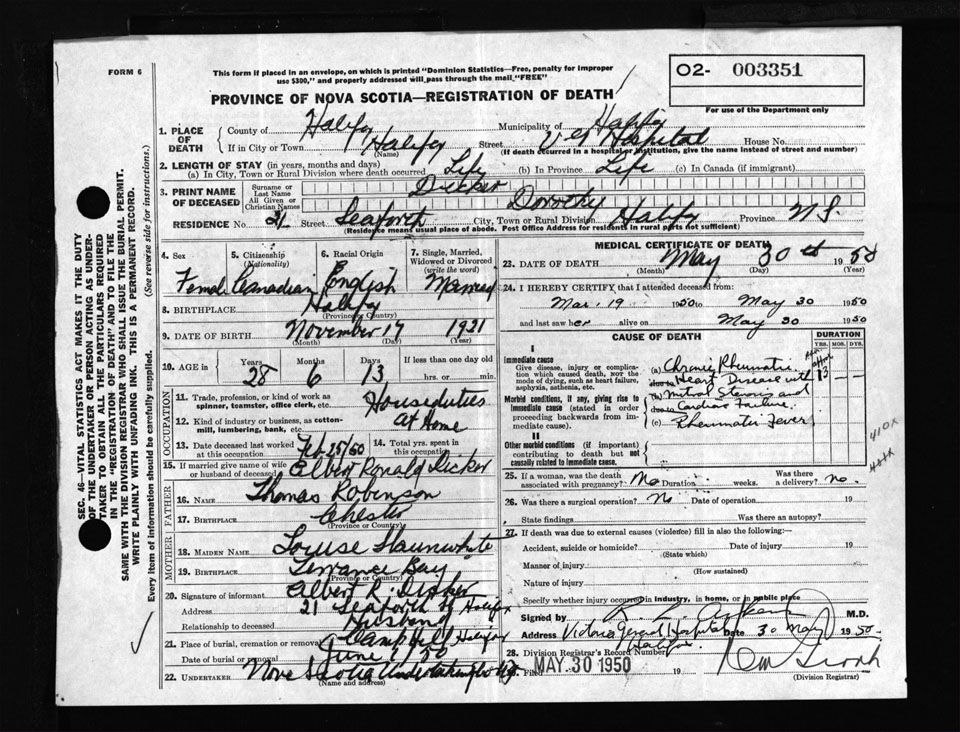 FORM 6
This form if placed in an envelope, on which is printed "Dominion Statistics—Free, penalty for improper
use $300," and properly addressed will pass through the mail "FREE"
O2- 003351
For use of the Department only
PROVINCE OF NOVA SCOTIA—REGISTRATION OF DEATH
1. PLACE OF DEATH
County of Halifax Municipality of Halifax
If in City or Town Halifax Street V.G. Hospital House No.
(Name) (If death occurred in a hospital or institution, give the name instead of street and number)
2. LENGTH OF STAY (in years, months and days)
(a) In City, Town or Rural Division where death occurred Life (b) In Province Life (c) In Canada (if immigrant)
3. PRINT NAME OF DECEASED
Surname or Last Name Dicker
All Given or Christian Names Dorothy
RESIDENCE No. 21 Street Seaforth City, Town or Rural Division Halifax Province N.S.
(Residence means usual place of abode. Post Office Address for residents in rural parts not sufficient)
4. Sex Female
5. Citizenship (Nationality) Canadian
6. Racial Origin English
7. Single, Married, Widowed or Divorced (write the word) Married
8. BIRTHPLACE Halifax
(Province or Country)
9. DATE OF BIRTH November 17 1921
(Month) (Day) (Year)
10. AGE in Years 28 Months 6 Days 13 If less than one day old
hrs. or min.
OCCUPATION
11. Trade, profession, or kind of work as spinner, teamster, office clerk, etc. Houseduties
12. Kind of industry or business, as cotton-mill, lumbering, bank, etc. At Home
13. Date deceased last worked at this occupation Feb 25/50
14. Total yrs. spent in this occupation
15. If married give name of wife or husband of deceased Albert Ronald Dicker
FATHER
16. NAME Thomas Robinson
17. BIRTHPLACE Chester
(Province or Country)
MOTHER
18. MAIDEN NAME Louise Slaunwhite
19. BIRTHPLACE Terrance Bay
(Province or Country)
20. Signature of informant Albert R. Dicker
Address 21 Seaforth St Halifax
Relationship to deceased Husband
21. Place of burial, cremation or removal Camp Hill, Halifax
Date of burial or removal June 1/50
22. UNDERTAKER Nova Scotia Undertaking Co
(Name and address)
MEDICAL CERTIFICATE OF DEATH
23. DATE OF DEATH May 30th 1950
(Month) (Day) (Year)
24. I HEREBY CERTIFY that I attended deceased from:
Mar. 19 1950 to May 30 1950
and last saw her alive on May 30 1950
CAUSE OF DEATH
DURATION
YRS. MOS. DYS.
I
Immediate cause
Give disease, injury or complication which caused death, not the mode of dying, such as heart failure, asphyxia, asthenia, etc.
Morbid conditions, if any, giving rise to immediate cause (stated in order proceeding backwards from immediate cause).
(a) Chronic Rheumatic
due to Heart Disease with 13
(b) Mitral Stenosis and
due to Cardiac Failure.
(c) Rheumatic Fever
II
Other morbid conditions (if important) contributing to death but not causally related to immediate cause.
410X
25. If a woman, was the death associated with pregnancy? No Duration weeks. Was there a delivery? no.
26. Was there a surgical operation? No Date of operation 19
State findings Was there an autopsy?
27. If death was due to external causes (violence) fill in also the following:
Accident, suicide or homicide? Date of injury 19
(State which)
Manner of injury
(How sustained)
Nature of injury
Specify whether injury occurred in industry, in home, or in public place
Signed by M.D.
Address Victoria General Hospital Halifax. Date 30 May 1950
28. Division Registrar's Record Number
MAY 30 1950 19
(Division Registrar)
SEC. 46—VITAL STATISTICS ACT MAKES IT THE DUTY
OF THE UNDERTAKER OR PERSON ACTING AS UNDER-
TAKER TO OBTAIN ALL THE PARTICULARS REQUIRED
IN THE "REGISTRATION OF DEATH" AND TO FILE THE
SAME WITH THE DIVISION REGISTRAR WHO SHALL ISSUE THE BURIAL PERMIT.
WRITE PLAINLY WITH UNFADING INK. THIS IS A PERMANENT RECORD.
Every item of information should be carefully supplied. (See reverse side for instructions.)